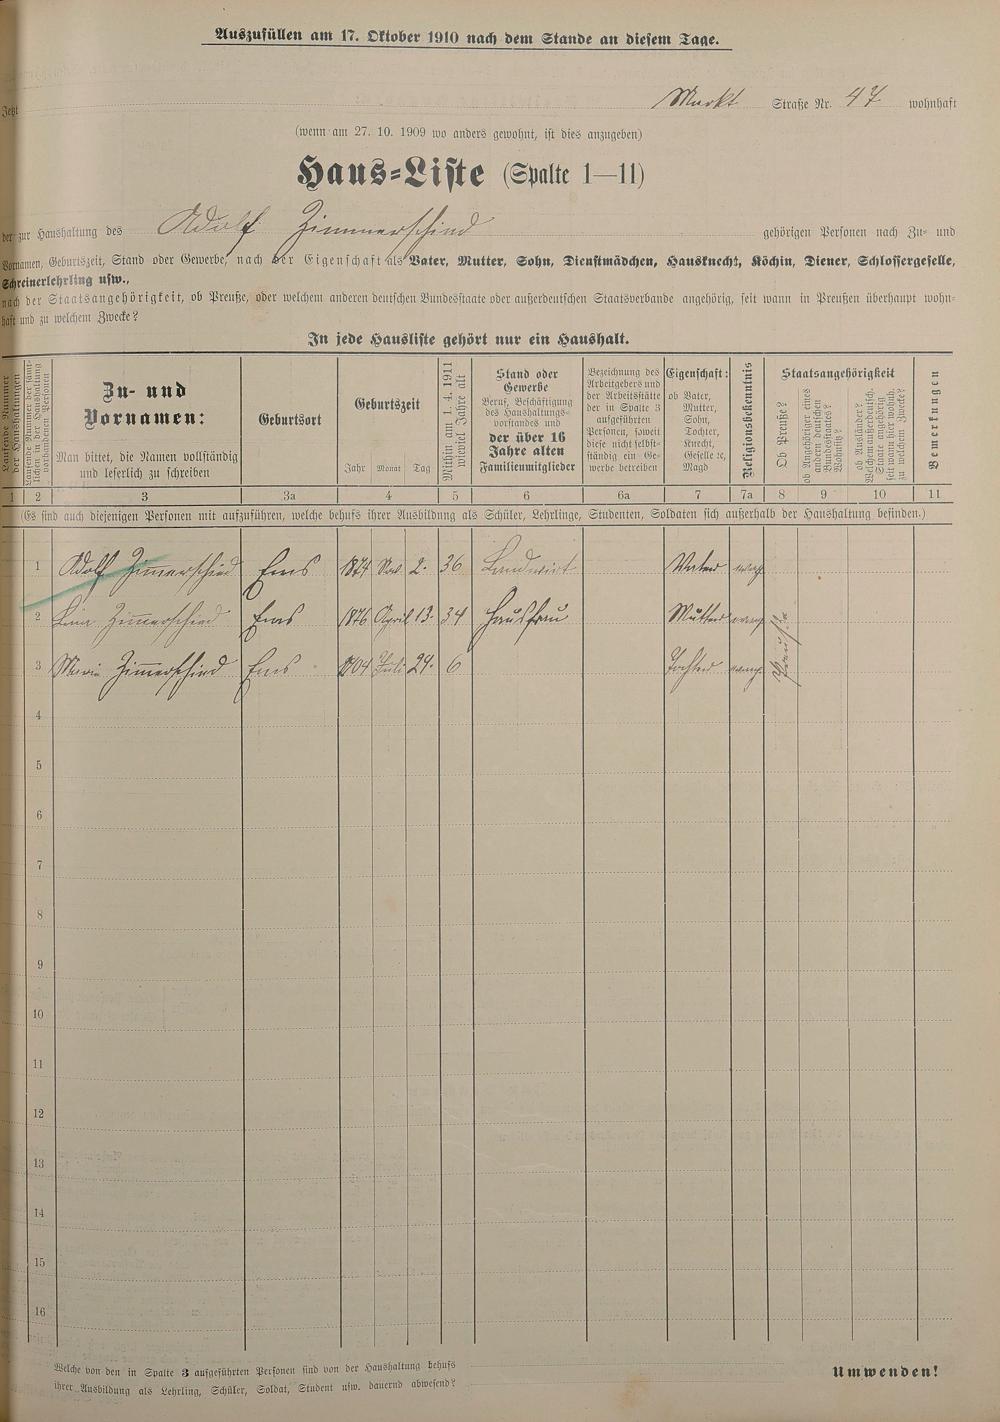 Auszufüllen am 17. Oktober 1910 nach dem Stande an diesem Tage.
Jetzt Markt Straße Nr. 47 wohnhaft
(wenn am 27. 10. 1909 wo anders gewohnt, ist dies anzugeben)
Haus-Liste (Spalte 1—11)
der zur Haushaltung des Adolf Zimmerschied gehörigen Personen nach Zu- und
Vornamen, Geburtszeit, Stand oder Gewerbe, nach der Eigenschaft als Vater, Mutter, Sohn, Dienstmädchen, Hausknecht, Köchin, Diener, Schlossergeselle,
Schreinerlehrling usw.,
nach der Staatsangehörigkeit, ob Preuße, oder welchem anderen deutschen Bundesstaate oder außerdeutschen Staatsverbande angehörig, seit wann in Preußen überhaupt wohn-
haft und zu welchem Zwecke?
In jede Hausliste gehört nur ein Haushalt.
Laufende Nummer
der Haushaltungen
Laufende Nummer der sämt-
lichen in der Haushaltung
vorhandenen Personen
Zu- und
Vornamen:
Man bittet, die Namen vollständig
und leserlich zu schreiben
Geburtsort
Geburtszeit
Jahr Monat Tag
Mithin am 1. 4. 1911
wieviel Jahre alt
Stand oder
Gewerbe
Beruf, Beschäftigung
des Haushaltungs-
vorstandes und
der über 16
Jahre alten
Familienmitglieder
Bezeichnung des
Arbeitgebers und
der Arbeitsstätte
der in Spalte 3
aufgeführten
Personen, soweit
diese nicht selbst-
ständig ein Ge-
werbe betreiben
Eigenschaft:
ob Vater,
Mutter,
Sohn,
Tochter,
Knecht,
Geselle ec,
Magd
Religionsbekenntnis
Staatsangehörigkeit
Ob Preuße?
ob Angehörige eines
andern deutschen
Bundesstaates?
Wohnsitz?
ob Ausländer?
Welchem außerdeutsch.
Staate angehörig
seit wann hier wohnh.
zu welchem Zwecke?
Bemerkungen
1 2 3 3a 4 5 6 6a 7 7a 8 9 10 11
(Es sind auch diejenigen Personen mit aufzuführen, welche behufs ihrer Ausbildung als Schüler, Lehrlinge, Studenten, Soldaten sich außerhalb der Haushaltung befinden.)
1 Adolf Zimmerschied Ems 1874 Nov. 2. 36 Landwirt Vater evang.
2 Lina Zimmerschied Ems 1876 April 13. 34 Hausfrau Mutter evang.
3 Marie Zimmerschied Ems 1904 Juli 24. 6 Tochter evang.
Preuße
4
5
6
7
8
9
10
11
12
13
14
15
16
Welche von den in Spalte 3 aufgeführten Personen sind von der Haushaltung behufs
ihrer Ausbildung als Lehrling, Schüler, Soldat, Student usw. dauernd abwesend?
Umwenden!